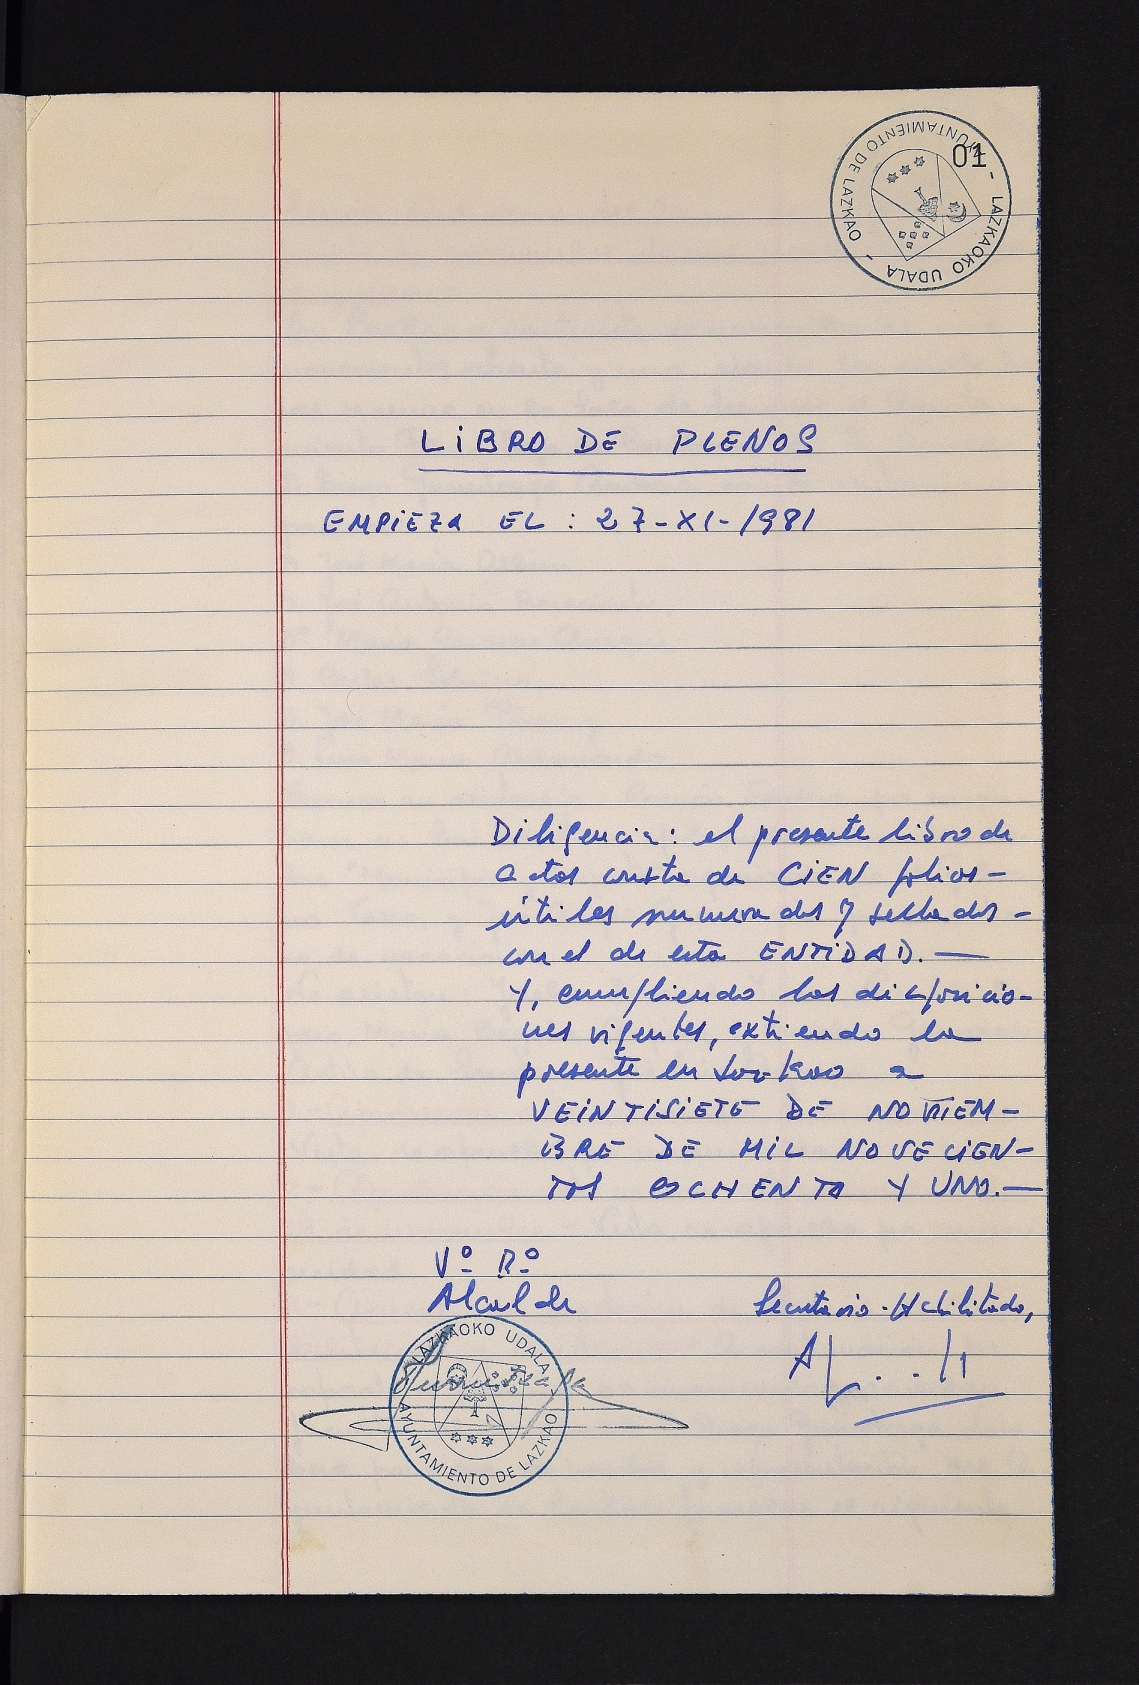 01
AYUNTAMIENTO DE LAZKAO - LAZKAOKO UDALA -
LiBRO DE PLENOS
EMPiEZA EL : 27-XI-1981
Diligencia: el presente libro de
actas consta de CiEN folios -
útiles numerados y sellados -
con el de esta ENTiDAD. —
Y, cumpliendo las disposicio-
nes vigentes, extiendo la
presente en Lazkao a
VEiNTiSiETE DE NOViEM-
BRE DE MiL NOVECiEN-
TOS OCHENTA Y UNO. —
Vº Bº
Alcalde
Secretario-Habilitado,
LAZKAOKO UDALA
AYUNTAMIENTO DE LAZKAO